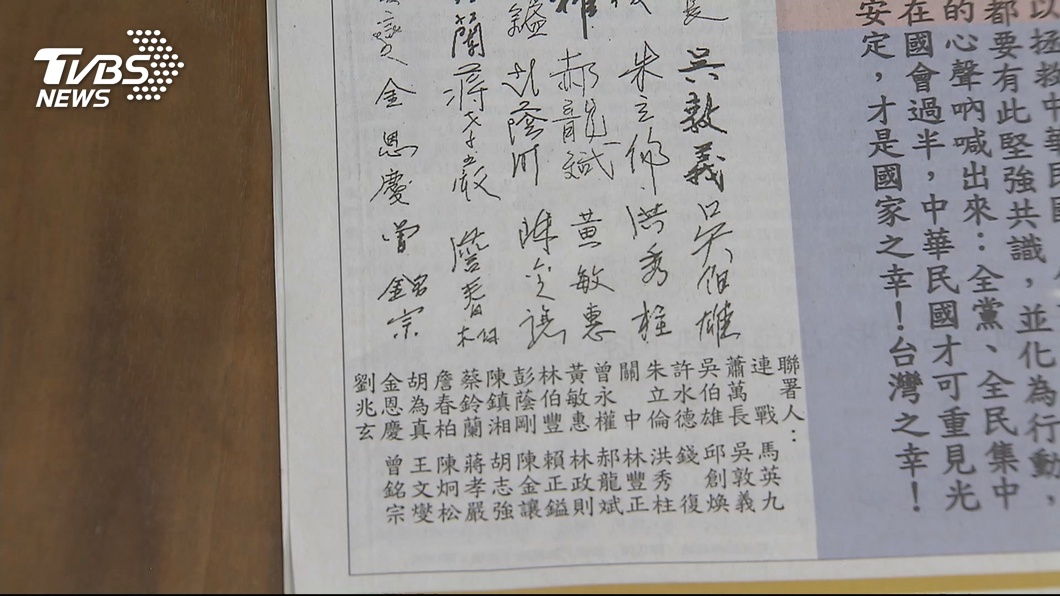 以拯救中華民國
都要有此堅強共識，並化為行動，
的心聲吶喊出來：全黨、全民集中
在國會過半，中華民國才可重見光
安定，才是國家之幸！台灣之幸！
長 吳敦義 吳伯雄
朱立倫 洪秀柱
權 郝龍斌 黃敏惠
鎰 彭蔭剛 陳金讓
蘭 蔣孝嚴 詹春柏
燮 金恩慶 曾銘宗
聯署人：
連戰 馬英九
蕭萬長 吳敦義
吳伯雄 邱創煥
許水德 錢復
朱立倫 洪秀柱
關中 林豐正
曾永權 郝龍斌
黃敏惠 林政則
林伯豐 賴正鎰
彭蔭剛 陳金讓
陳鎮湘 胡志強
蔡鈴蘭 蔣孝嚴
詹春柏 陳炯松
胡為真 王文燮
金恩慶 曾銘宗
劉兆玄
TVBS
NEWS